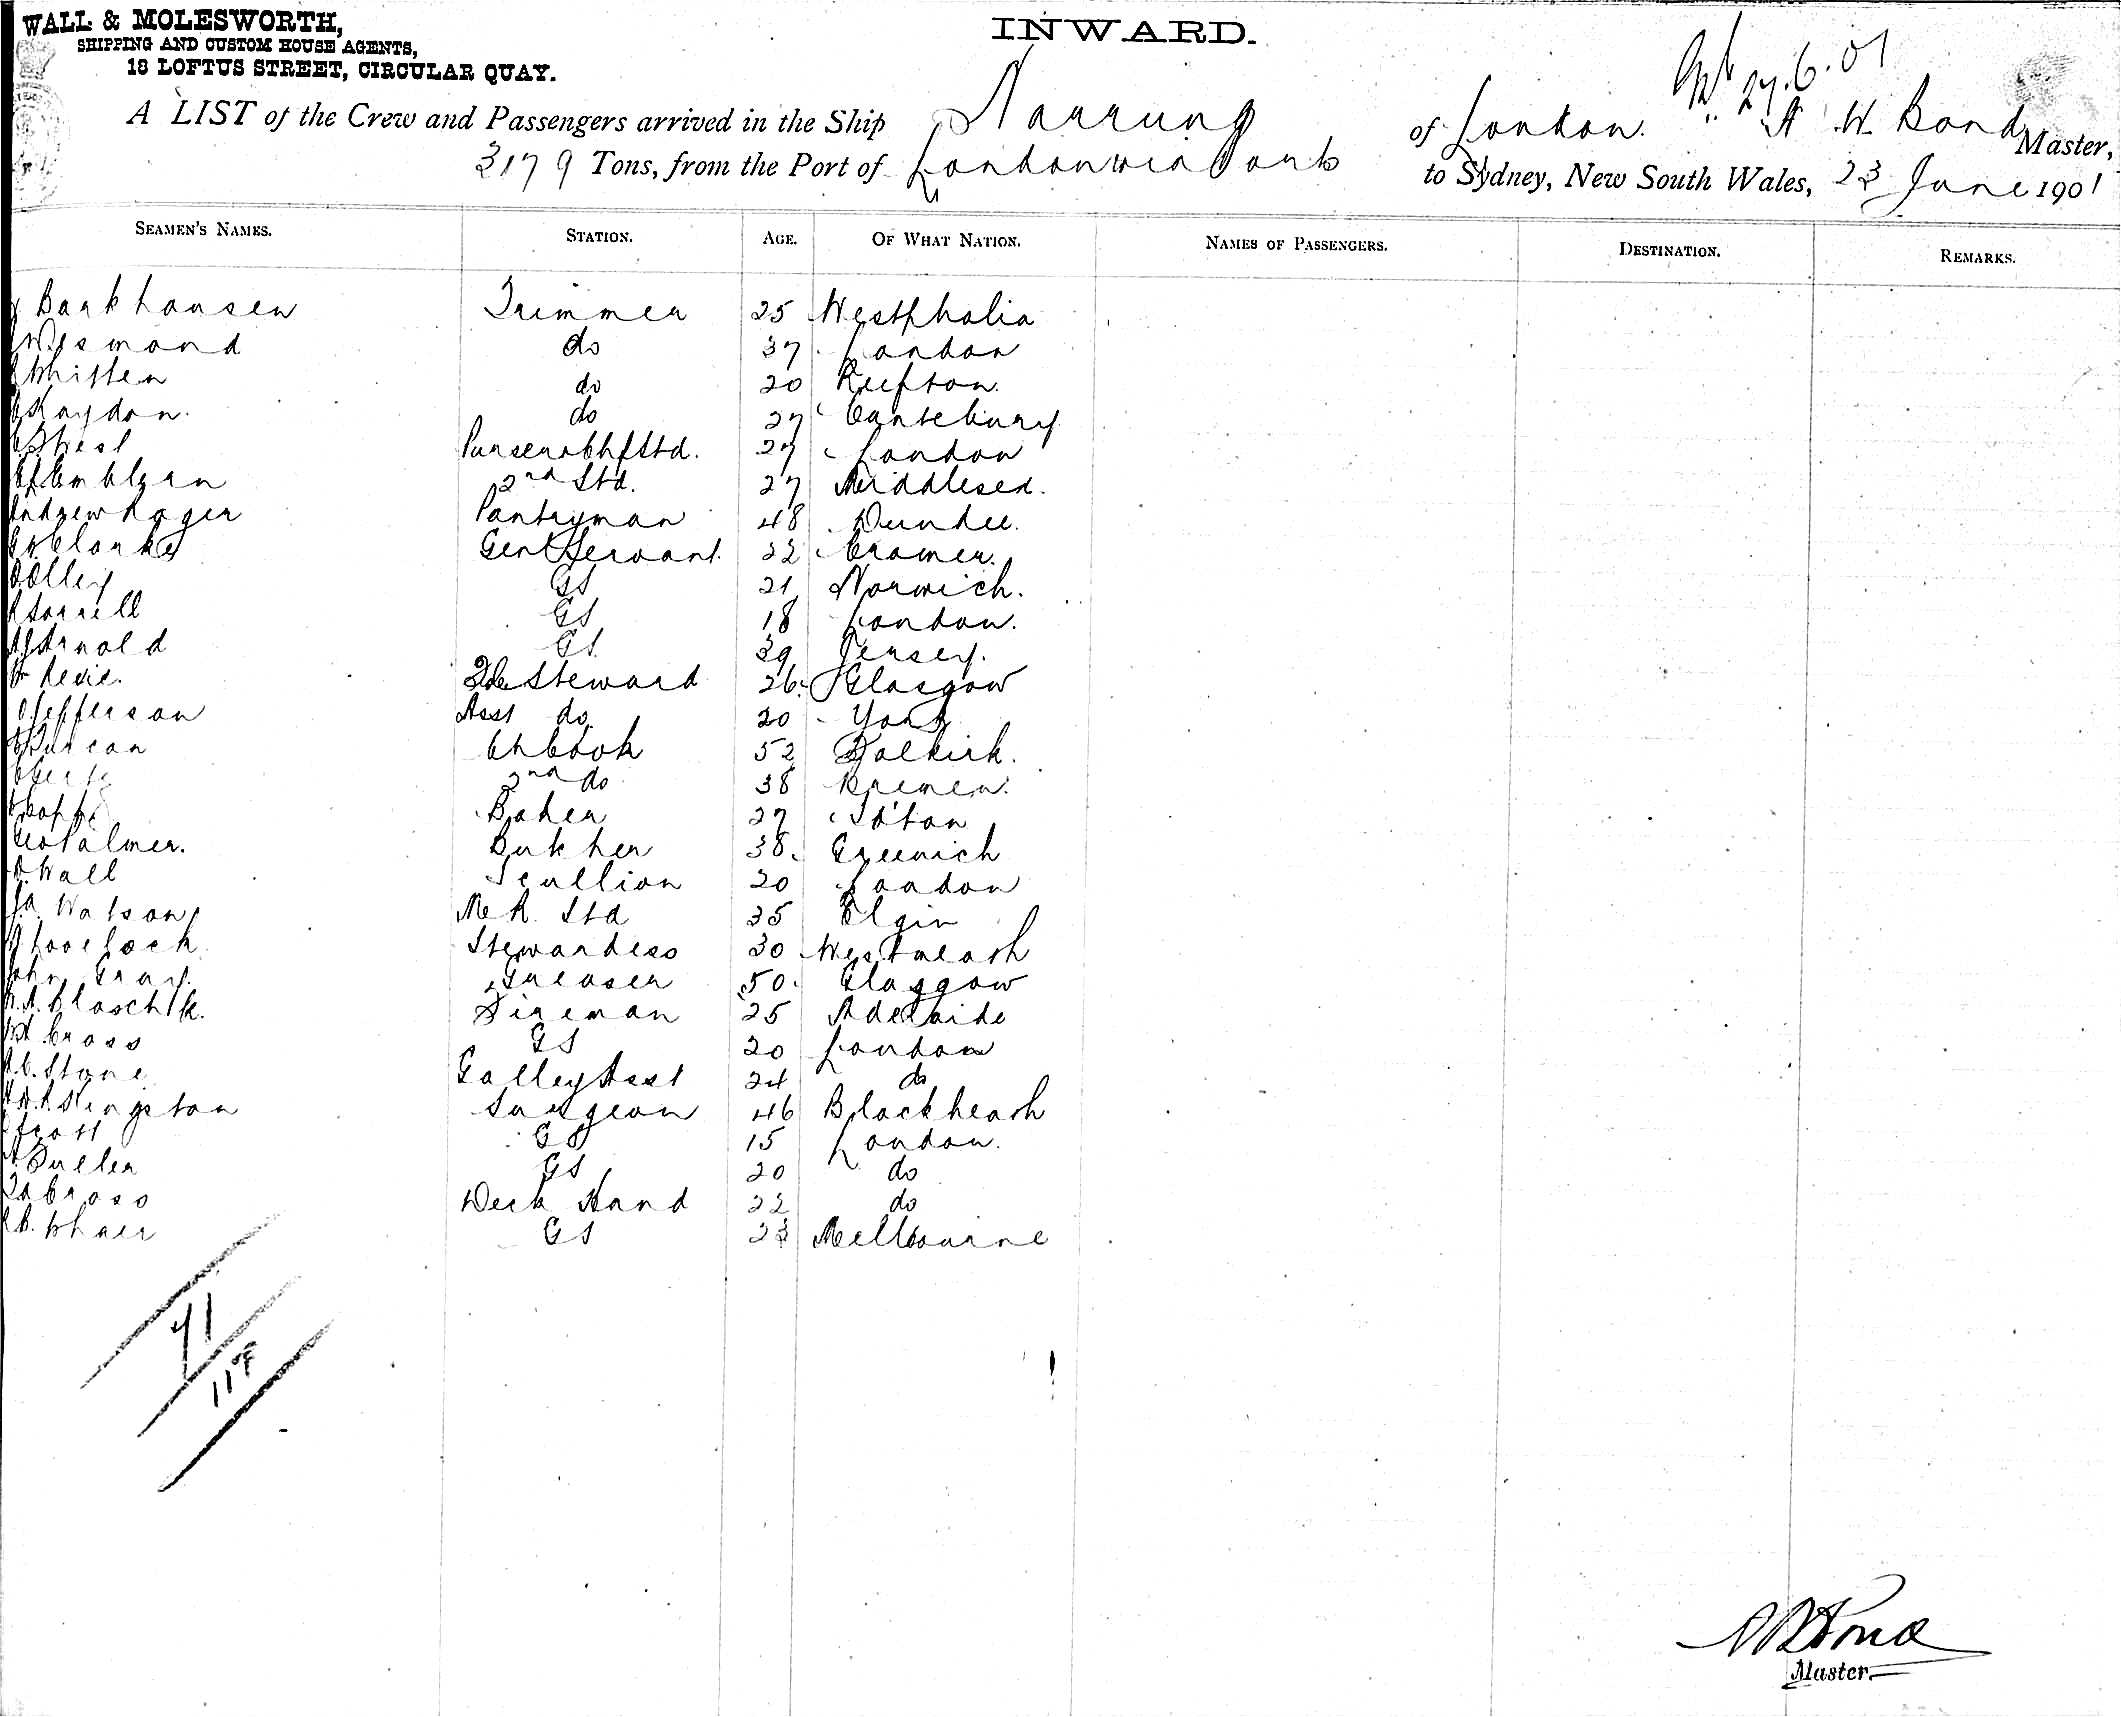 WALL & MOLESWORTH,
SHIPPING AND CUSTOM HOUSE AGENTS,
18 LOFTUS STREET, CIRCULAR QUAY.
INWARD.
27.6.01
A LIST of the Crew and Passengers arrived in the Ship Narrung of London. A W Bond Master,
3179 Tons, from the Port of London via Ports to Sydney, New South Wales, 23 June 1901
SEAMEN'S NAMES. STATION. AGE. OF WHAT NATION. NAMES OF PASSENGERS. DESTINATION. REMARKS.
Barkhausen Trimmer 25 Westphalia
do 37 London
Whitten do 20 Reefton.
Haydon. do 27 Cantebury
West Purser & Chf Std. 27 London
2nd Std. 27 Middlesex.
Andrew Roger Pantryman 48 Dundee.
Clarke Genl Servant. 22 Cromer.
Olley GS 21 Norwich.
Sorrell GS 18 London.
Arnold GS 29 Jersey.
Revie. Steward 26 Glasgow
Jefferson Asst do. 20 York
Duncan Ch Cook 52 Falkirk.
2nd do 38 Bremen.
Baker 27 So'ton
Geo Palmer. Butcher 38. Greenich
Wall Scullion 20 London
Watson Me R. Std 35 Elgin
Lovelock Stewardess 30 Westmeath
John Gray. Greaser 50. Glasgow
Blaschek. Fireman 25 Adelaide
Cross GS 20 London
Stone Galley Asst 24 do
Kingston Surgeon 46 Blackheath
Scott GS 15 London.
Fuller GS 20 do
Cross Deck Hand 22 do
GS 23 Melbourne
71
118
A W Bond
Master